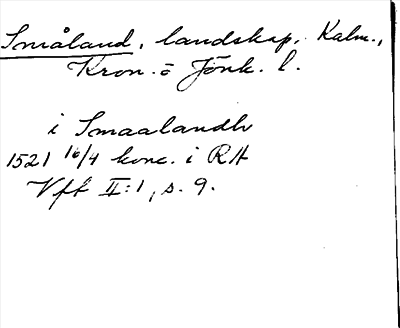 Småland, landskap, Kalm.,
Kron. o Jönk. l.
i Smaalandh
1521 16/4 konc. i RA
Vff II:1, s. 9.